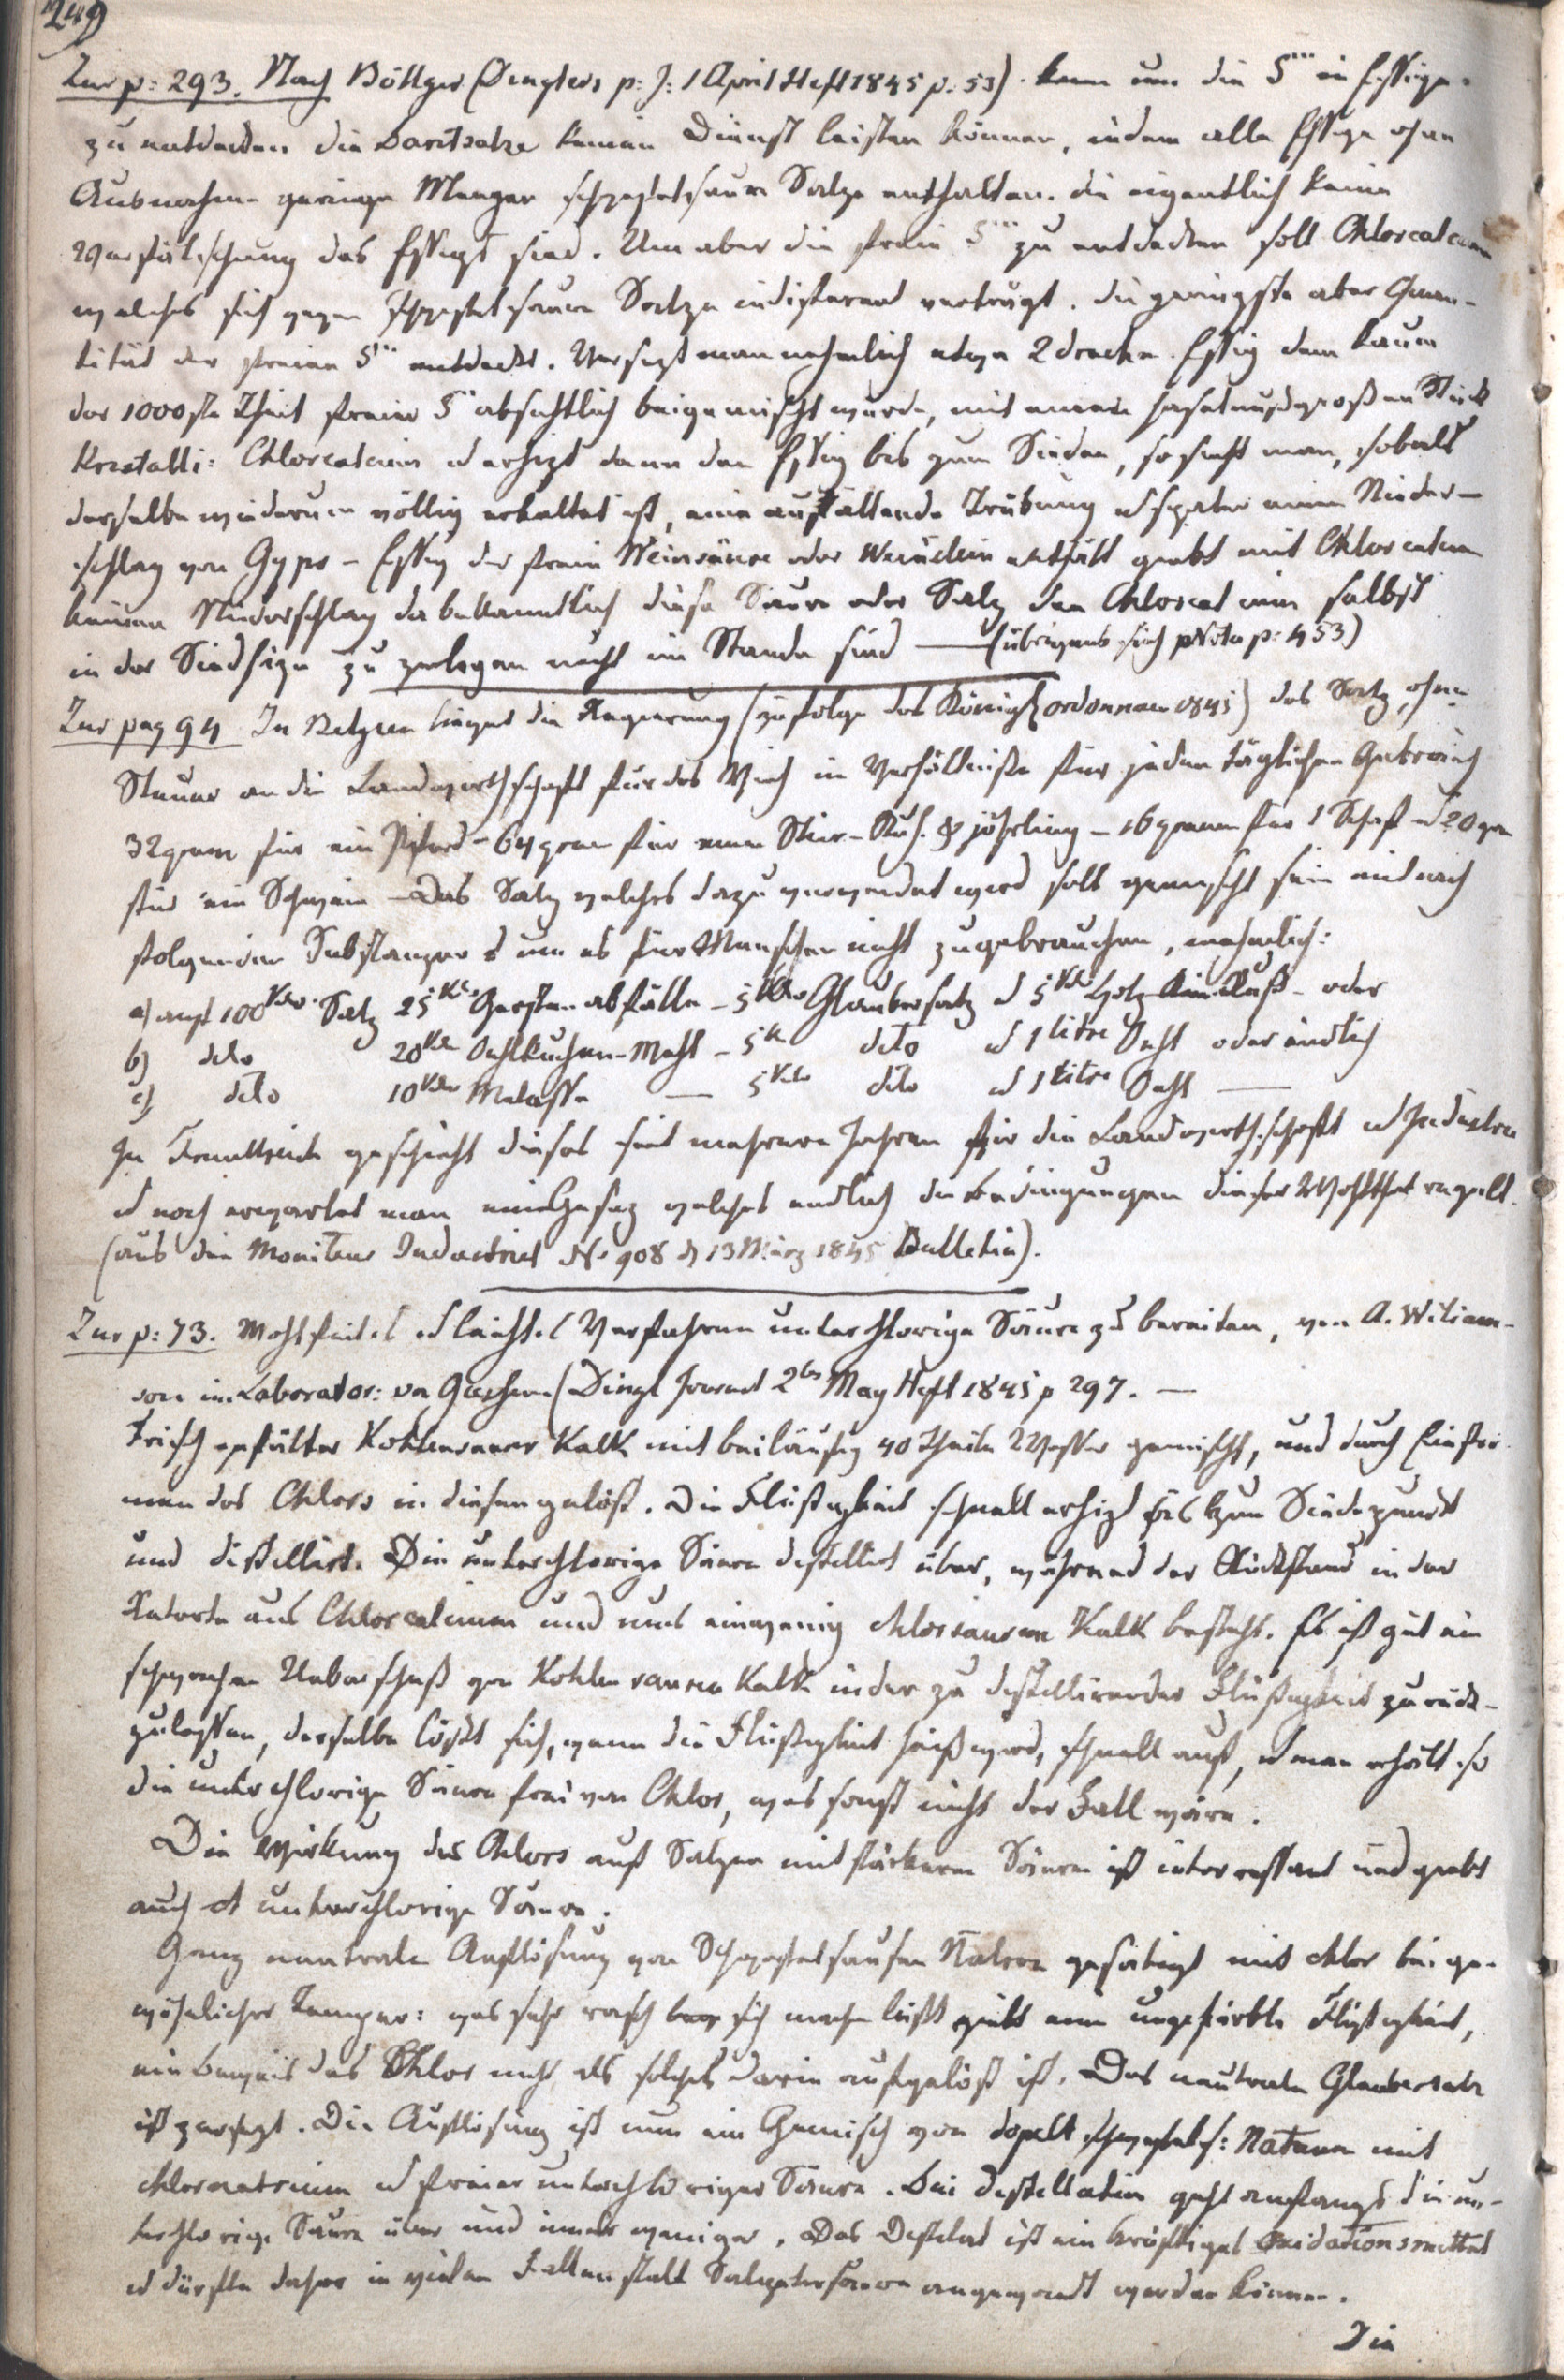 249
Zur p: 293. Nach Böttger (Dinglers p: J: 1 April Heft 1845 p. 53). kann um die S''' in Essige
zu entdecken die Baritsalze keinen Dienst leisten können, indem alle Essige ohne
Ausnahme geringe Mengen schwefelsaure Salze enthalten. die eigentlich keine
Verfälschung des Essigs sind. Um aber die freie S''' zu entdecken soll Chlorcalcium
welches sich gegen schwefelsaure Salze indiferend vertragt. die geringste aber Quan-
titüt der freien S''' entdeckt. Versezt man nehmlich etwa 2 drach. Essig dem kaum
der 1000ste Theil freie S''' absichtlich beigemischt wurde, mit einem haselnußgroßen Stück
Kristalli: Chlorcalcium u erhizt dann den Essig bis zum Sieden, so sieht man, sobald
derselbe wiederum völlig erkaltet ist, eine auffallende Trübung u später einen Nieder-
schlag von Gyps - Essig der freie Weinsäure oder Weinstein enthält giebt mit Chlorcalcium
keinen Niederschlag da bekanntlich diese Säure oder Salz den Chlorcalcium selbst
in der Siedhize zu zerlegen nicht im Stande sind — (übrigens sieh Nota p: 453)
Zur pag 94 In Belgien liefert die Regierung (zufolge des Königl ordonnanz 1845) das Salz ohne
Steuer an die Landwirthschaft für das Vieh im Verhältniße für jeden täglichen Gebrauch
32 gram für ein Pferd - 64 gram für einen Stier - Kuh & jährling - 16 gramm für 1 Schaf u 20 gra
für ein Schwein - Das Salz welches dazu verwendet wird soll gemischt sein mit nach
folgenden Substanzen um es für Menschen nicht zugebrauchen, nehmlich:
a) auf 100 Kilo Salz 25 Kilo Gerstenabfälle - 5 Kilo Glaubersalz u 5 Kilo Holz Ruß - oder
b) deto 20 Kilo Oehlkuchen-Mehl - 5 K deto u 1 litre Oehl oder endlich
c) deto 10 Kilo Melasse — 5 Kilo deto u 1 litre Oehl —
In Frankreich geschieht dieses seit mehreren Jahren für die Landwirthschaft u Industrie
u noch erwartet man ein Gesez welches endlich die Bedingungen dieser Wohlthat regelt.
(aus die Moniteur Industriel No 908 d 13 März 1845 Bulletin).
Zur p: 73. Wohlfeiles u leichtes Verfahren unterchlorige Säure zu bereiten, von A. Wiliam-
son im Laborator: von Gießen (Dingl Journal 2tes May Heft 1845 p 297. —
Frisch gefälter Kohlensaurer Kalk mit beiläufig 40 Theile Wasser gemischt, und durch Einströ-
men des Chlors in diesen gelöst. Die Flüßigkeit schnell erhizt bis zum Siedepunkt
und distillirt. Die unterchlorige Säure destillirt über, während der Rückstand in der
Retorte aus Chlorcalcium und nur ein wenig chlorsaurem Kalk besteht. Es ist gut ein
schwachen Ueberschuß von Kohlensauren Kalk in der zu destillirender Flüßigkeit zurück-
zulassen, derselbe lößt sich, wenn die Flüßigkeit heiß wird, schnell auf, u man erhält so
die unterchlorige Säure frei von Chlor, was sonst nicht der Fall wäre.
Die Wirkung des Chlors auf Salzen mit stärkeren Säuren ist interessant und giebt
auch unterchlorige Säure.
Ganz neutrale Auflösung von Schwefelsauren Natron gesätiegt mit chlor bei ge-
wöhnlicher Temper: was sehr rasch sich machen läßt giebt eine ungefärbte Flüßigkeit,
ein beweis das Chlor nicht als solches darin aufgelöst ist. Das neutrale Glaubersalz
ist zersezt. Die Auflösung ist nun ein Gemisch von dopelt schwefels: Natron mit
chlornatrium u freier unterchloriger Säure. Bei destellation geht anfangs die un-
terchlorige Säure über und immer weniger. Das Destilat ist ein kräftiges Oxidationsmittel
u dürfte daher in vielen Fällen statt Salpetersäure angewandt werden können.
Die